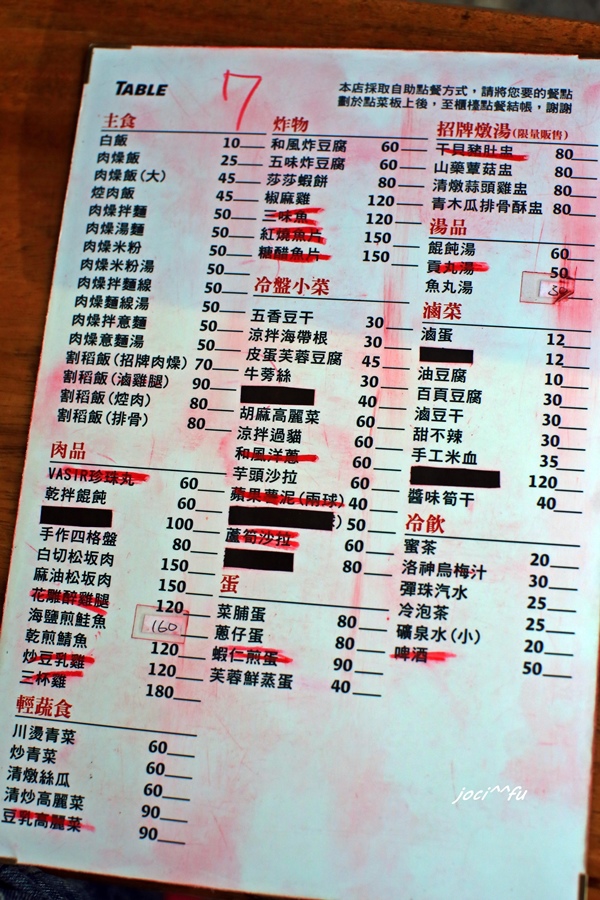 TABLE 7
本店採取自助點餐方式，請將您要的餐點
劃於點菜板上後，至櫃檯點餐結帳，謝謝
主食
白飯 10
肉燥飯 25
肉燥飯(大) 45
焢肉飯 45
肉燥拌麵 50
肉燥湯麵 50
肉燥米粉 50
肉燥米粉湯 50
肉燥拌麵線 50
肉燥麵線湯 50
肉燥拌意麵 50
肉燥意麵湯 50
割稻飯(招牌肉燥) 70
割稻飯(滷雞腿) 90
割稻飯(焢肉) 80
割稻飯(排骨) 80
肉品
VASIR珍珠丸 60
乾拌餛飩 60
100
手作四格盤 80
白切松坂肉 150
麻油松坂肉 150
花雕醉雞腿 120
海鹽煎鮭魚 160
乾煎鯖魚 120
炒豆乳雞 120
三杯雞 180
輕蔬食
川燙青菜 60
炒青菜 60
清燉絲瓜 60
清炒高麗菜 90
豆乳高麗菜 90
炸物
和風炸豆腐 60
五味炸豆腐 60
莎莎蝦餅 80
椒麻雞 120
三味魚 120
紅燒魚片 150
糖醋魚片 150
冷盤小菜
五香豆干 30
涼拌海帶根 30
皮蛋芙蓉豆腐 45
牛蒡絲 30
40
胡麻高麗菜 60
涼拌過貓 60
和風洋蔥 60
芋頭沙拉 60
蘋果薯泥(兩球) 40
) 50
蘆筍沙拉 60
80
蛋
菜脯蛋 80
蔥仔蛋 80
蝦仁煎蛋 90
芙蓉鮮蒸蛋 40
招牌燉湯(限量販售)
干貝豬肚盅 80
山藥蕈菇盅 80
清燉蒜頭雞盅 80
青木瓜排骨酥盅 80
湯品
餛飩湯 60
貢丸湯 50
魚丸湯
滷菜
滷蛋 12
12
油豆腐 10
百頁豆腐 30
滷豆干 30
甜不辣 30
手工米血 35
120
醬味筍干 40
冷飲
蜜茶 20
洛神烏梅汁 30
彈珠汽水 25
冷泡茶 25
礦泉水(小) 20
啤酒 50
joci^^fu